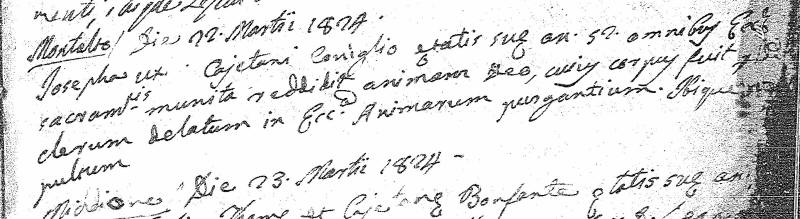 menti,
Montalto Die 22. Martii 1824.
Josepha ux. Cajetani Coniglio etatis sue an. 52. omnibus
sacramtis munita reddidit animam Deo, cujus corpus fuit
clerum delatum in Eccã Animarum purgantium. Ibique
pultum
Die 23. Martii 1824
et Cajetane Bonfante etatis sue an.